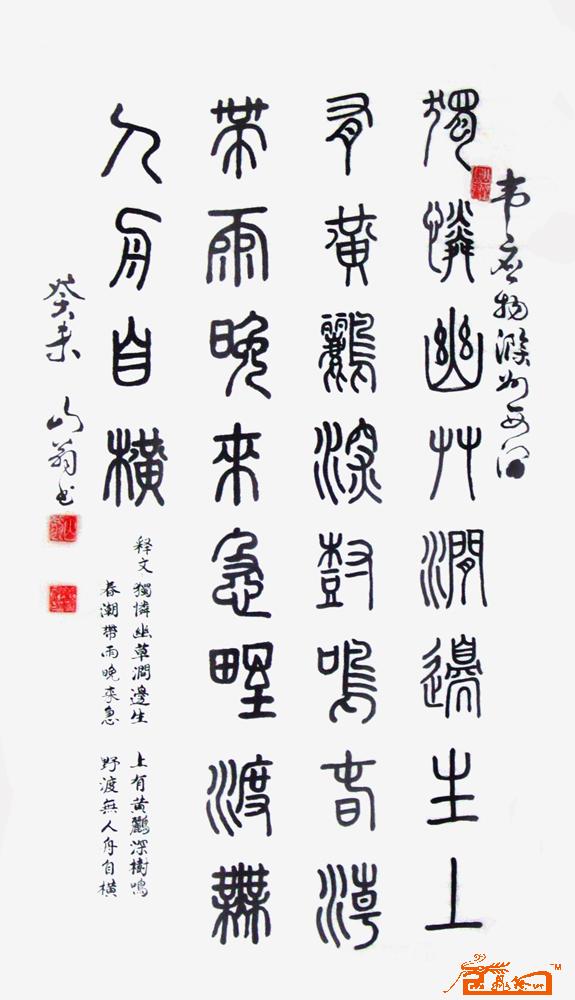 韦应物滁州西涧
獨憐幽艸澗邊生上
有黃鸝深樹鳴春潮
帶雨晚來急野渡無
人舟自橫
释文 獨憐幽草澗邊生 上有黄鸝深樹鳴
春潮帶雨晚來急 野渡無人舟自橫
癸未 山翁书